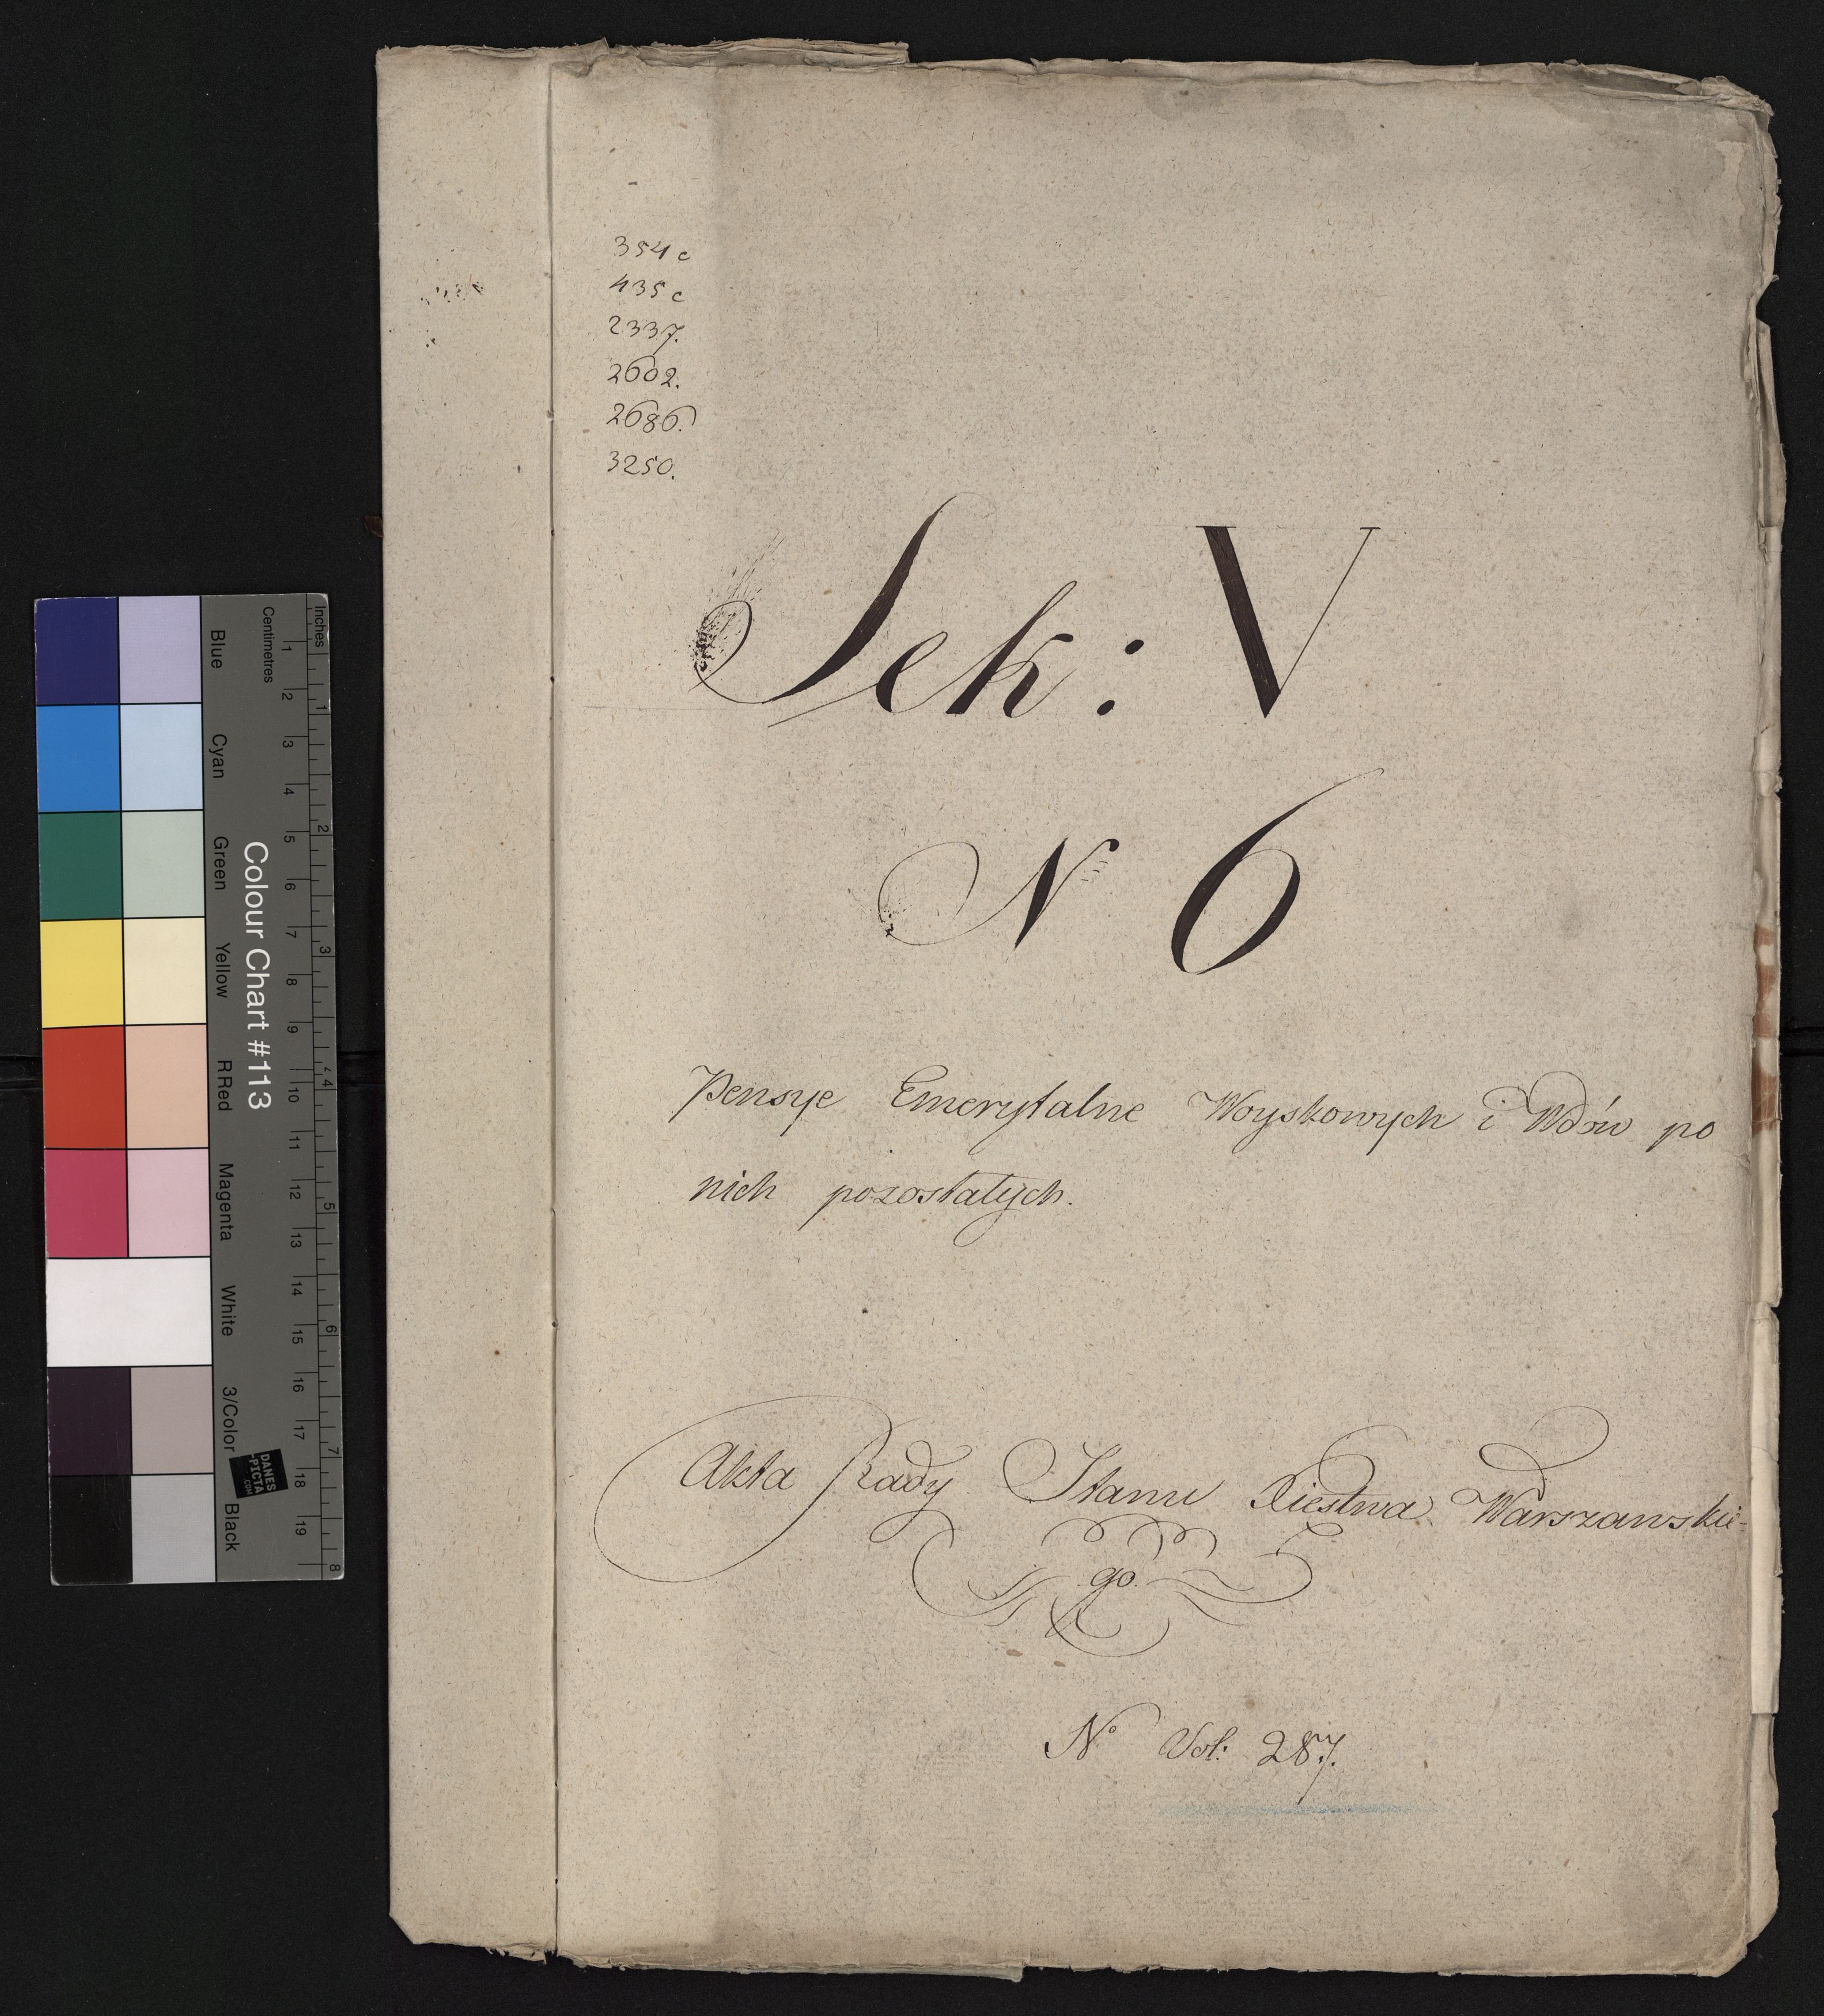 354 c
435 c
2337.
2602.
2686.
3250.
Sek: V
N 6
Pensye Emerytalne Woyskowych i Wdów po
nich pozostałych.
Akta Rady Stanu Xiestwa Warszawskie-
go.
No Vol: 287.
Inches
Centimetres
1 2 3 4 5 6 7 8 9 10 11 12 13 14 15 16 17 18 19
1 2 3 4 5 6 7 8
Colour Chart #113
Blue Cyan Green Yellow RRed Magenta White 3/Color Black
DANES
-PICTA
.COM